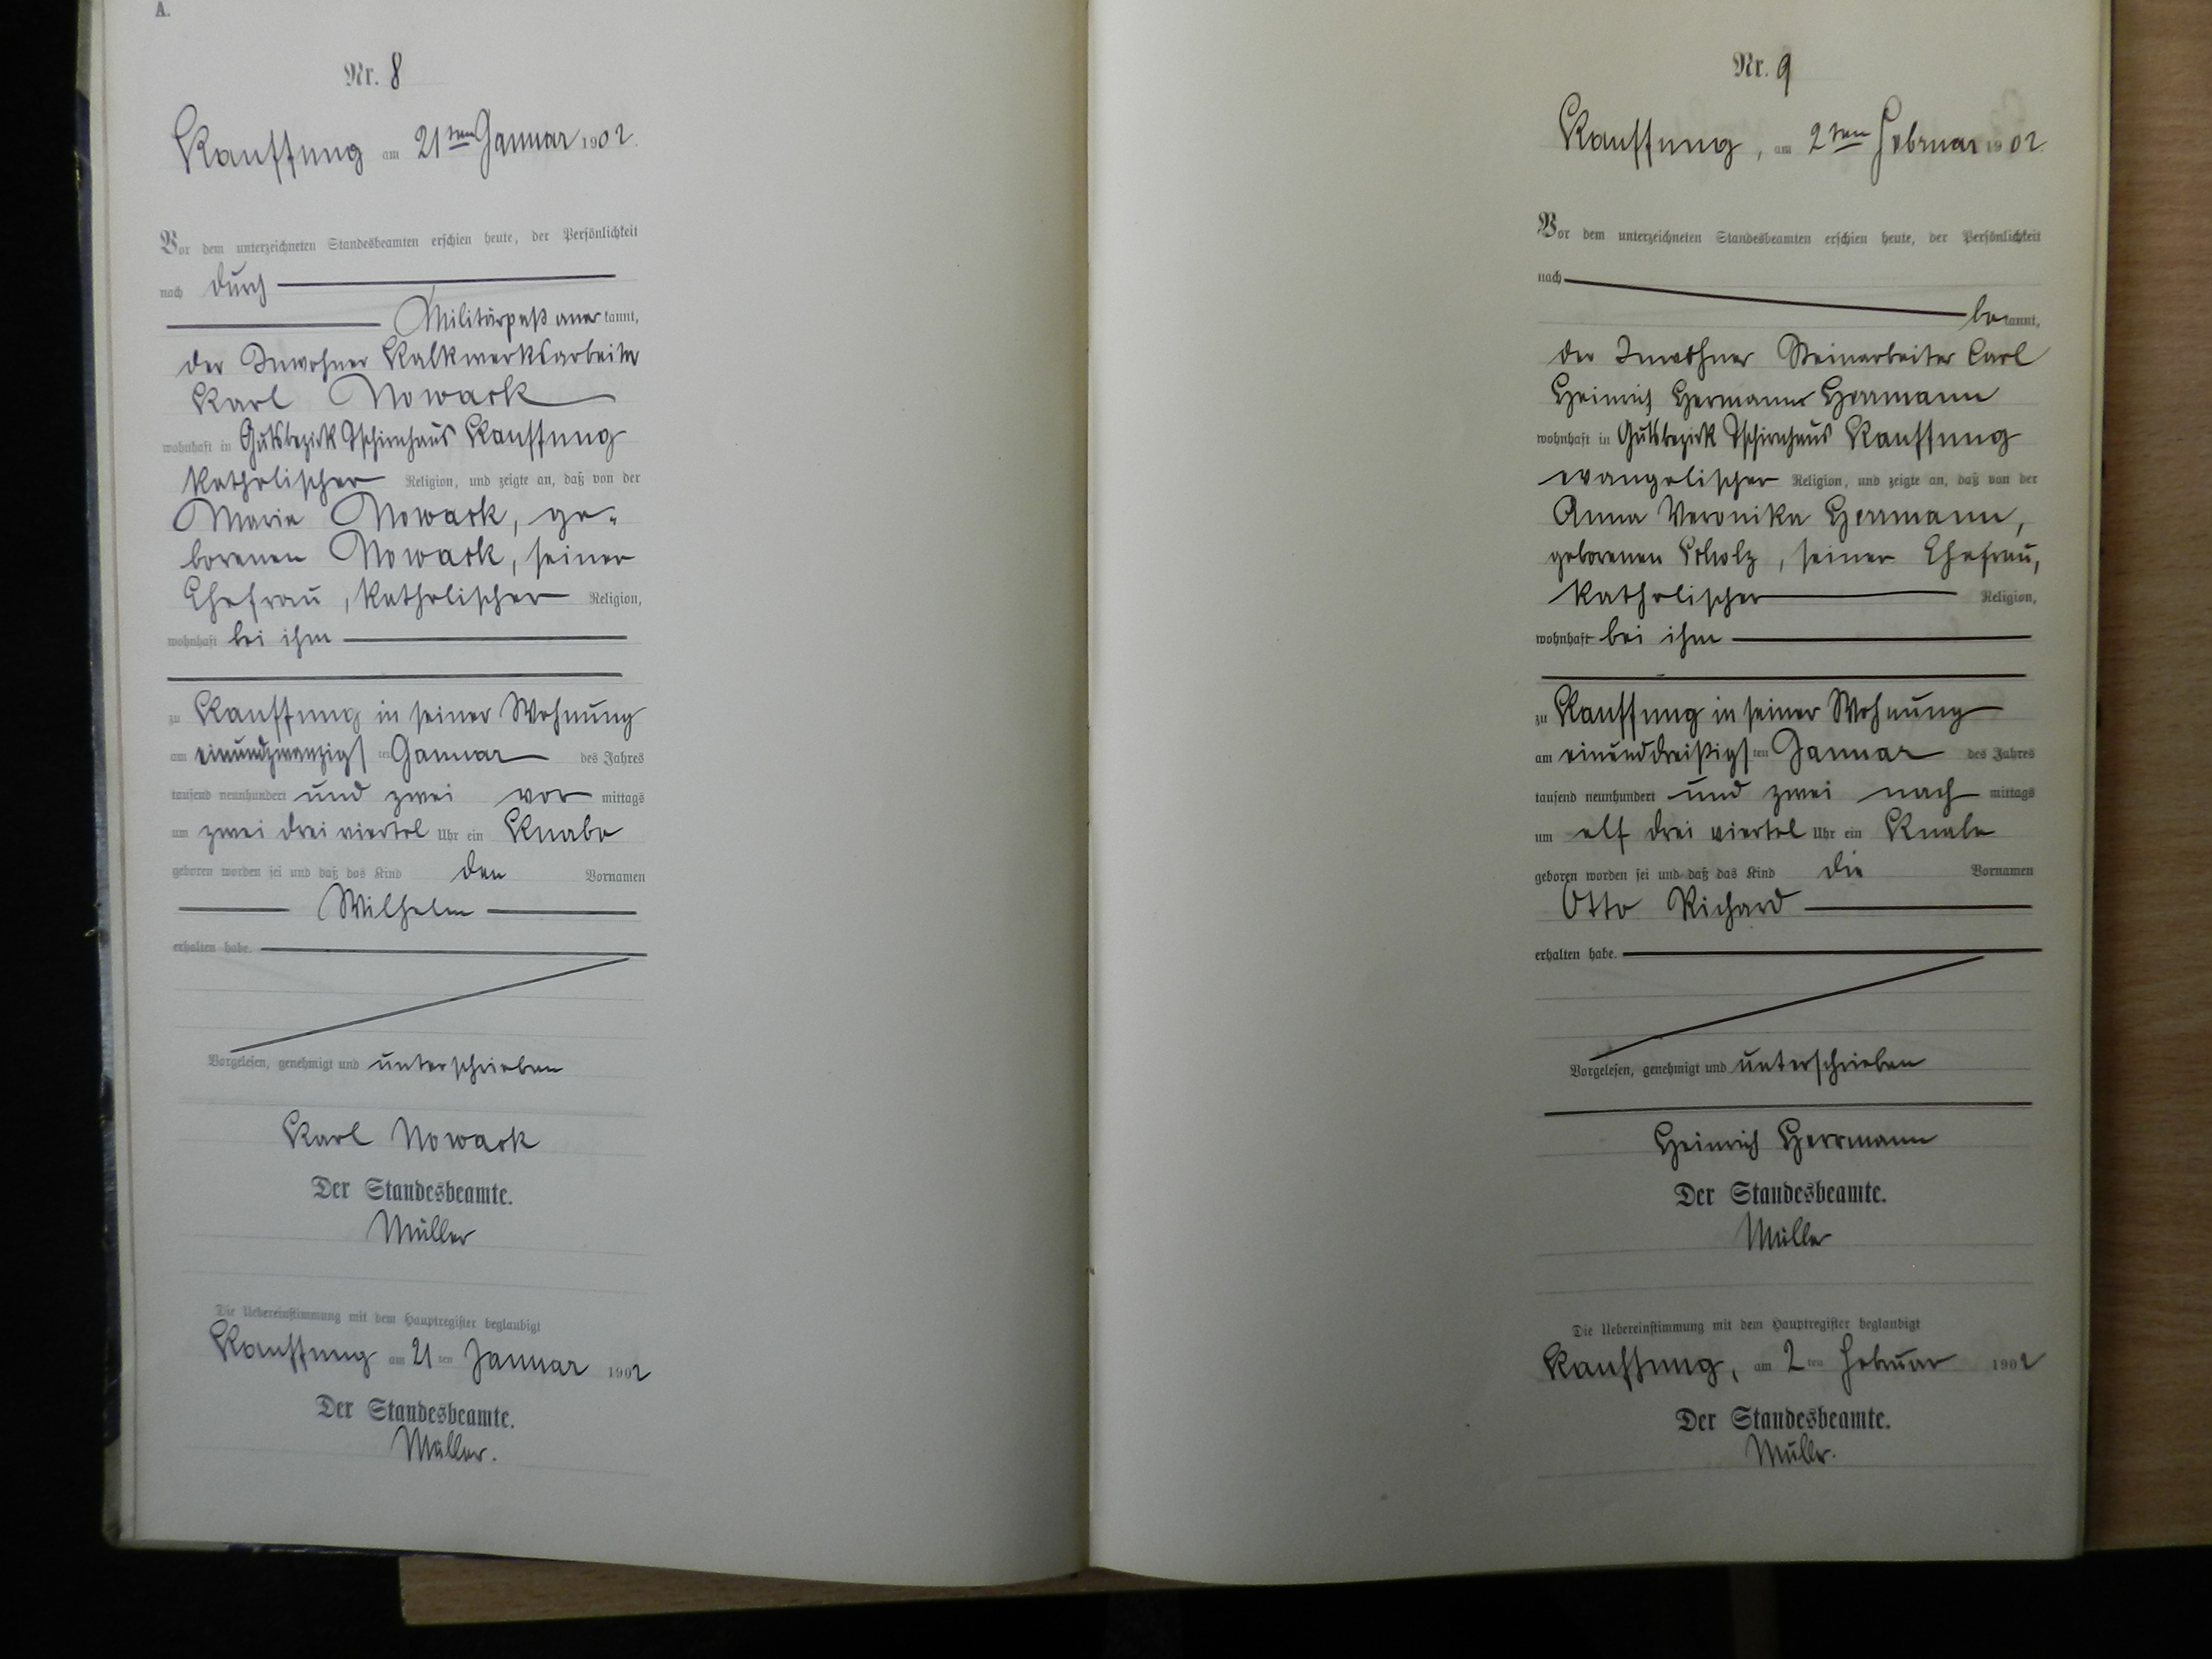 A.
Nr. 8
Kauffung am 21ten Januar 1902.
Vor dem unterzeichneten Standesbeamten erschien heute, der Persönlichkeit
nach durch
Militärpaß anerkannt,
der Inwohner Kalkwerksarbeiter
Karl Nowack
wohnhaft in Gutsbezirk Tschirnhaus Kauffung
katholischer Religion, und zeigte an, daß von der
Marie Nowack, ge-
borenen Nowack, seiner
Ehefrau, katholischer Religion,
wohnhaft bei ihm
zu Kauffung in seiner Wohnung
am einundzwanzigsten Januar des Jahres
tausend neunhundert und zwei vormittags
um zwei drei viertel Uhr ein Knabe
geboren worden sei und daß das Kind den Vornamen
Wilhelm
erhalten habe.
Vorgelesen, genehmigt und unterschrieben
Karl Nowack
Der Standesbeamte.
Müller
Die Uebereinstimmung mit dem Hauptregister beglaubigt
Kauffung am 21ten Januar 1902
Der Standesbeamte.
Müller.
Nr. 9
Kauffung, am 2ten Februar 1902.
Vor dem unterzeichneten Standesbeamten erschien heute, der Persönlichkeit
nach
bekannt,
der Inwohner Steinarbeiter Carl
Heinrich Hermann Herrmann
wohnhaft in Gutsbezirk Tschirnhaus Kauffung
evangelischer Religion, und zeigte an, daß von der
Anna Veronika Herrmann,
geborenen Scholz, seiner Ehefrau,
katholischer Religion,
wohnhaft bei ihm
zu Kauffung in seiner Wohnung
am einunddreißigsten Januar des Jahres
tausend neunhundert und zwei nachmittags
um elf drei viertel Uhr ein Knabe
geboren worden sei und daß das Kind die Vornamen
Otto Richard
erhalten habe.
Vorgelesen, genehmigt und unterschrieben
Heinrich Herrmann
Der Standesbeamte.
Müller
Die Uebereinstimmung mit dem Hauptregister beglaubigt
Kauffung, am 2ten Februar 1902
Der Standesbeamte.
Müller.